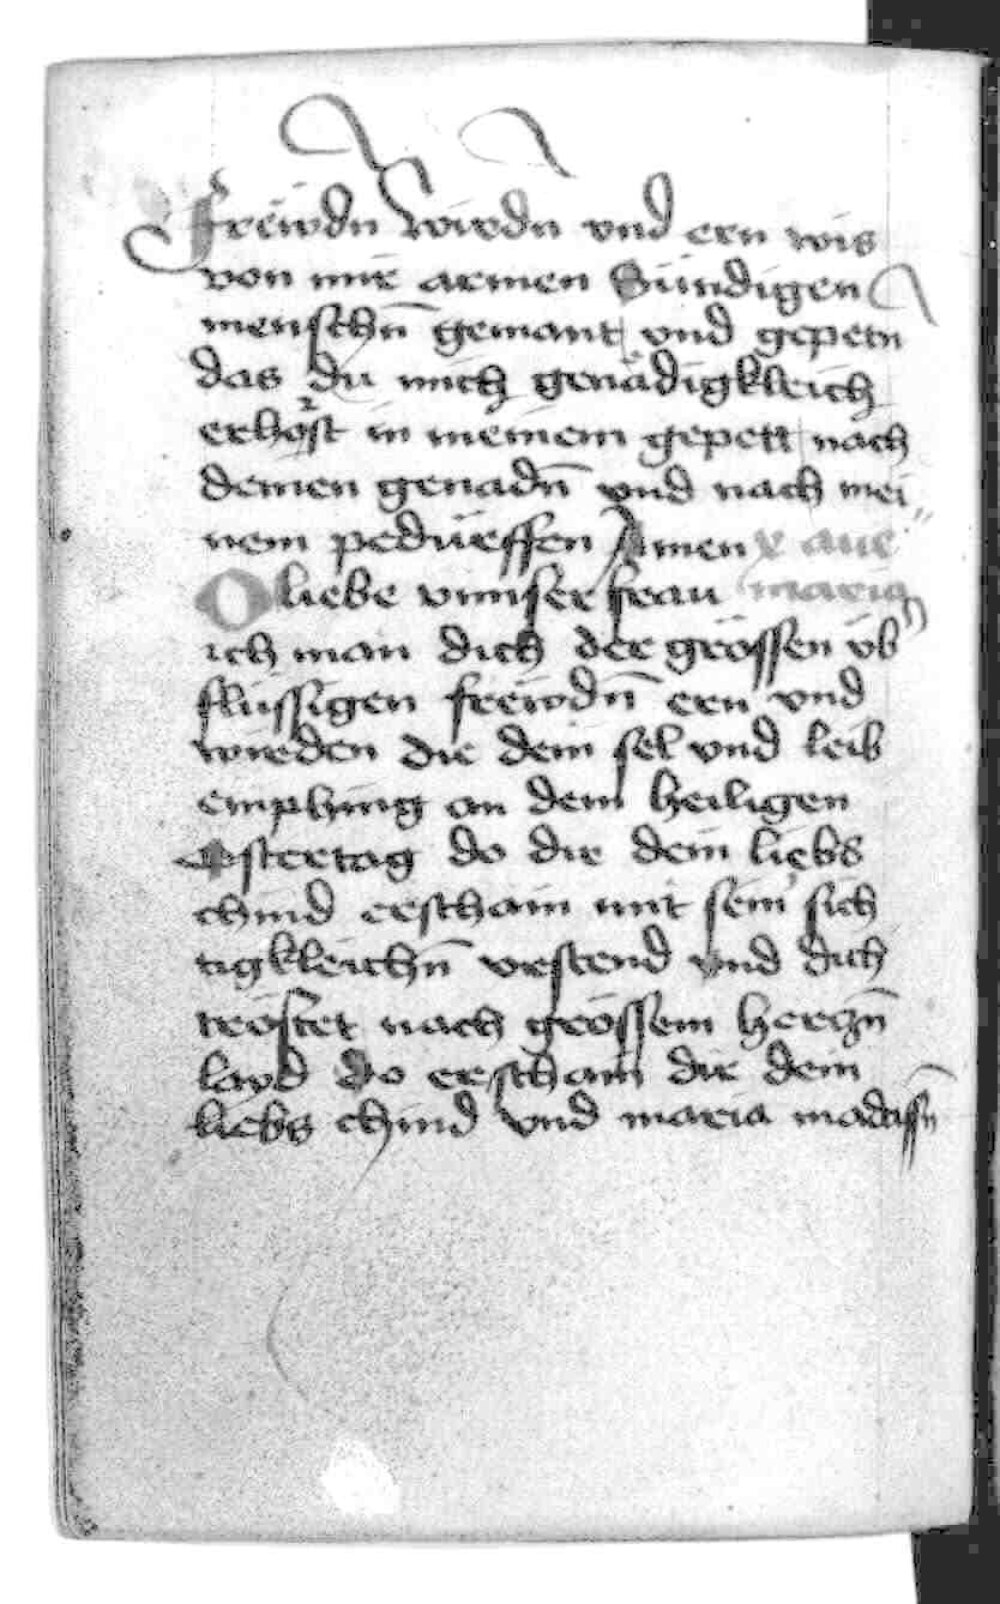 freẅdn wirdn vnd ern wis
von mir armen Sündigen
menschn̄ gemant vnd gepetn
das du mich genädigkleich
erhöst in meinem gepett nach
deinen genadn̄ vnd nach mei
nem pedürffen Amen x aue
O liebe vnnser frau maria
ich man dich der grössen üb
flüssigen freẅdn̄ ern vnd
wirden die dein sel vnd leib
emphing an dem heiligen
ostertag do dir dein liebs
chind erschain mit sein sich
tigkleichn̄ vrstend vnd dich
tröstet nach grössem herczn̄
layd do erschain dir dein
liebs chind vnd maria